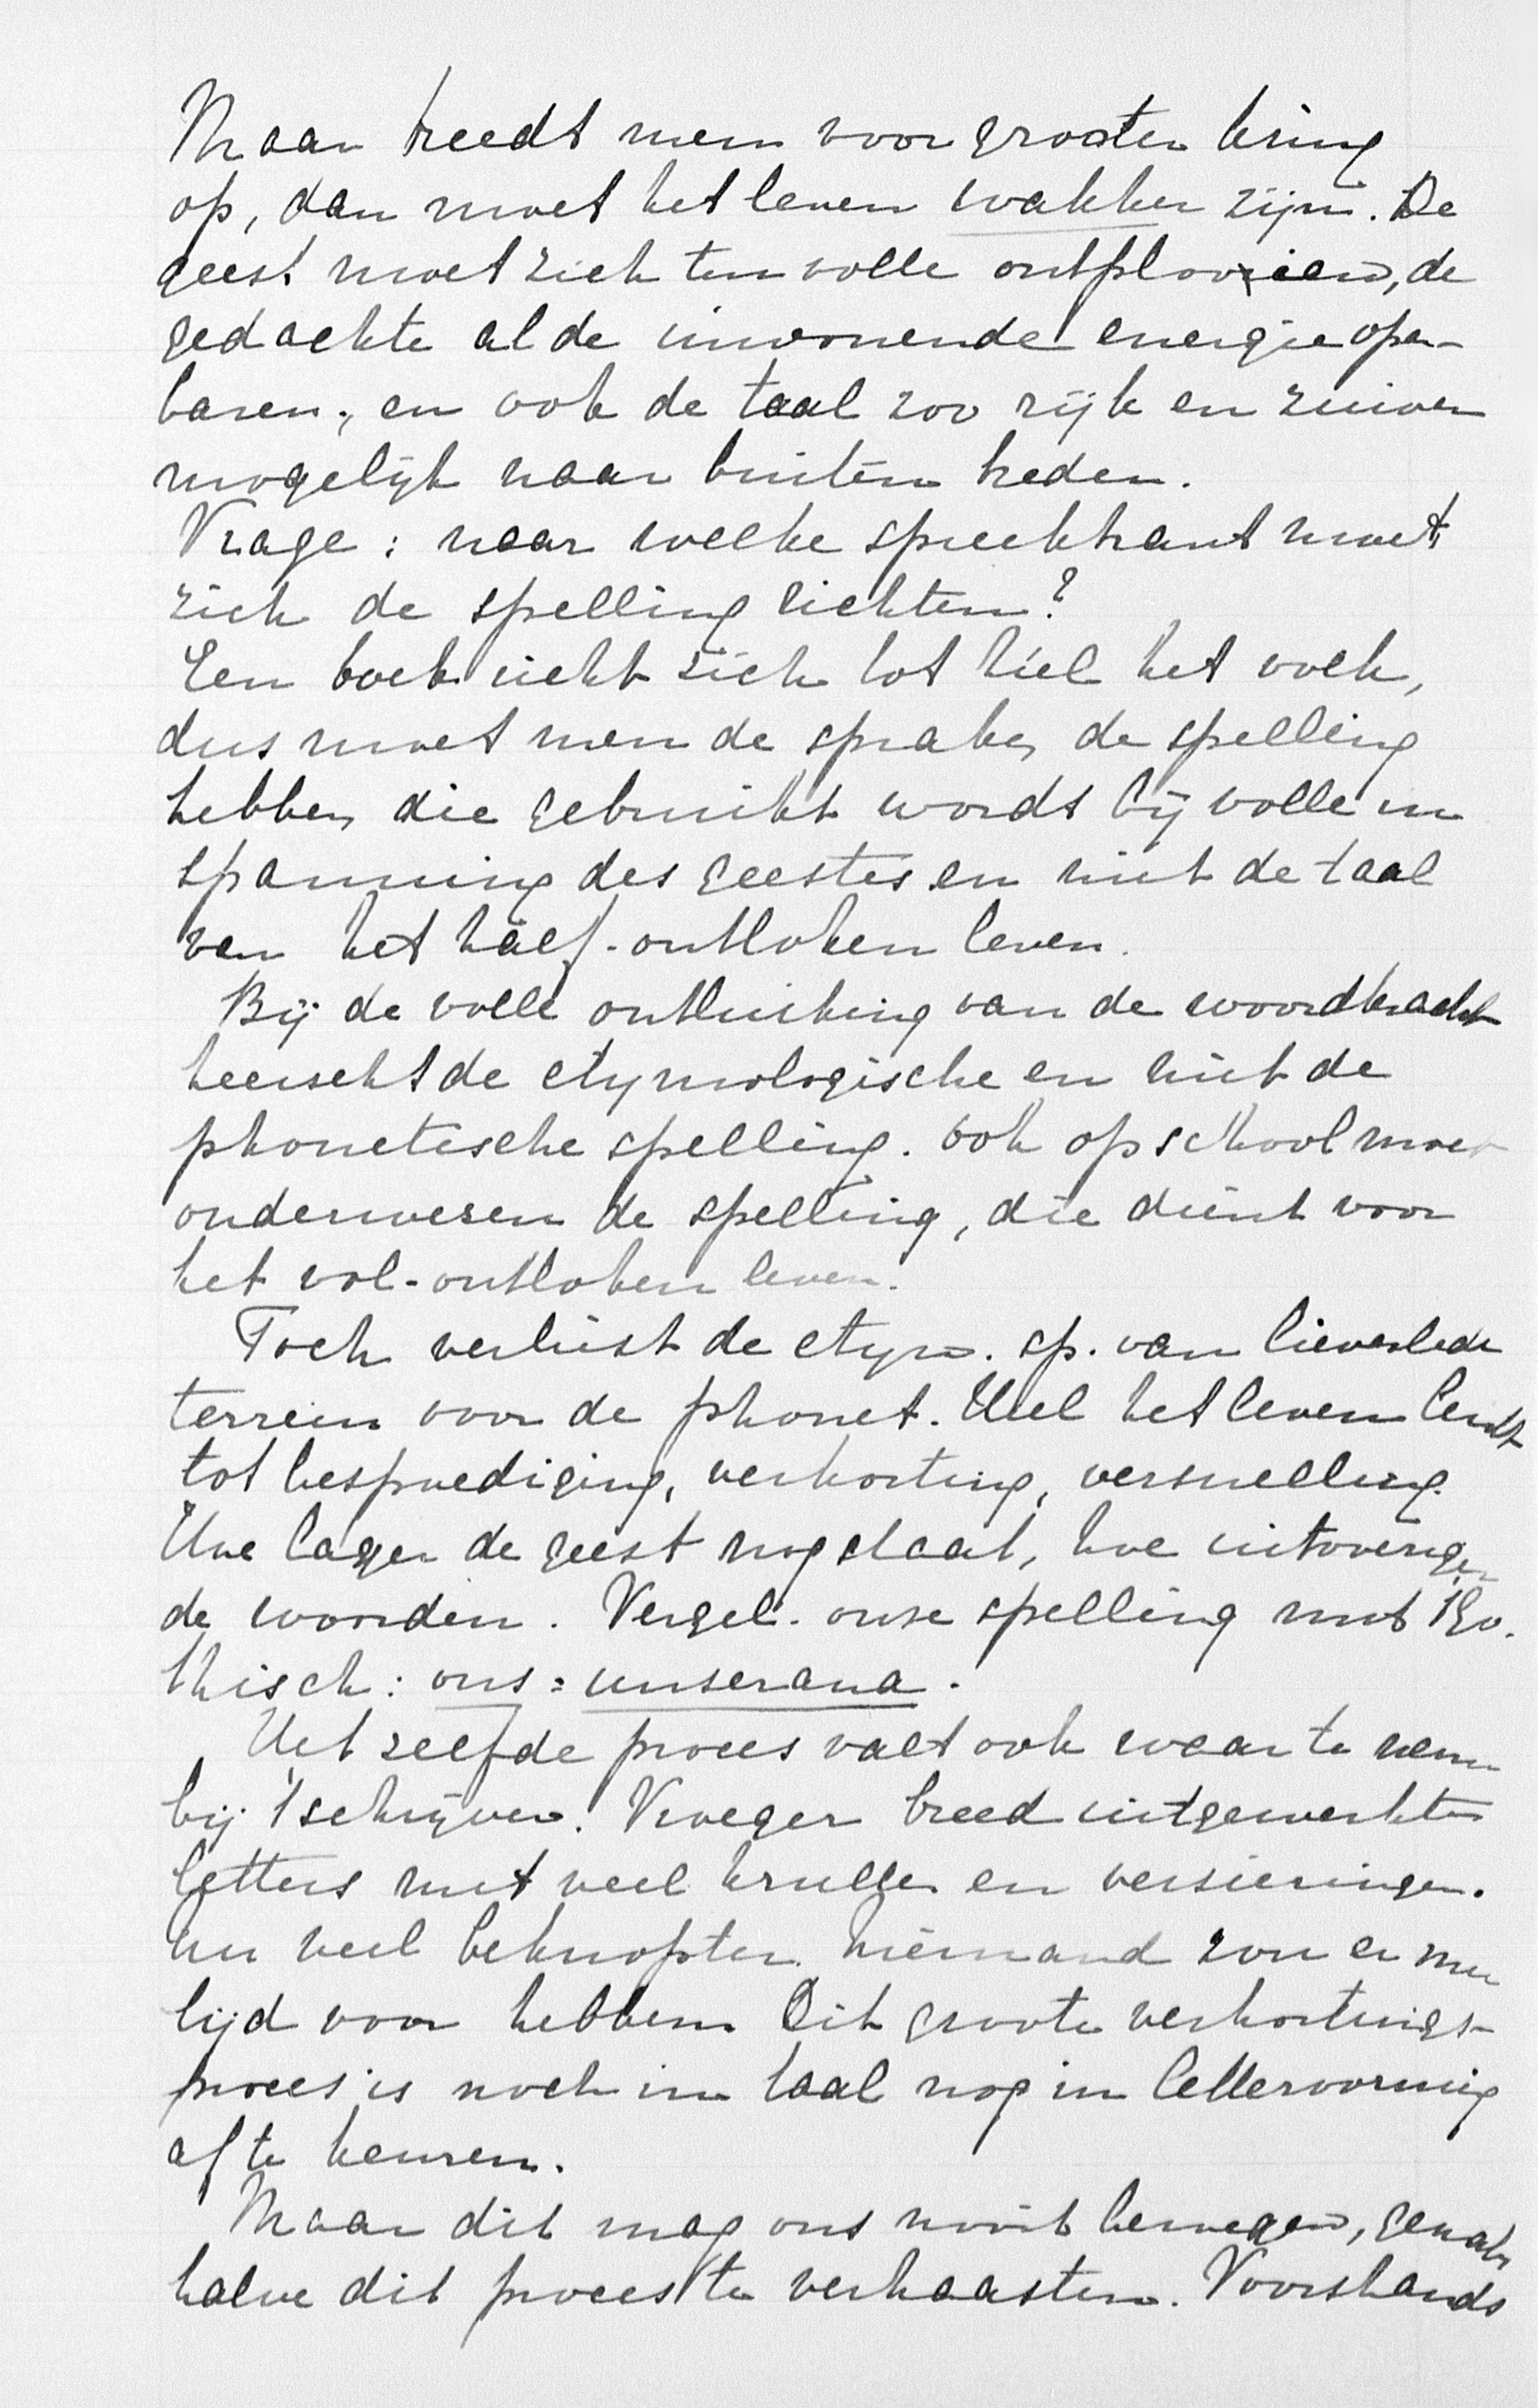 Maar treedt men voor grooten kring
op, dan moet het leven wakker zijn. De
geest moet zich ten volle ontplooien, de
gedachte al de inwonende energie open-
baren, en ook de taal zoo rijk en zuiver
mogelijk naar buiten treden.
Vrage: naar welke spreektrant moet
zich de spelling richten?
Een boek richt zich tot heel het volk,
dus moet men de sprake, de spelling
hebben die gebruikt wordt bij volle in
spanning des geestes en niet de taal
van het half-ontloken leven.
Bij de volle ontluiking van de woordkracht
heerscht de etymologische en niet de
phonetische spelling. Ook op school moet
onderwezen de spelling, die dient voor
het vol-ontloken leven.
Toch verliest de etym. sp. van lieverlede
terrein voor de phonet. Heel het leven leidt
tot bespoediging, verkorting, versnelling.
Hoe lager de geest nog staat, hoe uitvoeriger
de woorden. Vergel. onze spelling met 't Go.
thisch: ons = unserana.
Het zelfde proces valt ook waar te nemen
bij 't schrijven. Vroeger breed uitgewerkte
letters met veel krullen en versieringen.
nu veel beknopter. Niemand zou er meer
tijd voor hebben. Dit groote verkortings-
proces is noch in taal nog in lettervorming
af te keuren.
Maar dit mag ons nooit bewegen,
halve dit proces te verhaasten. Voorshands